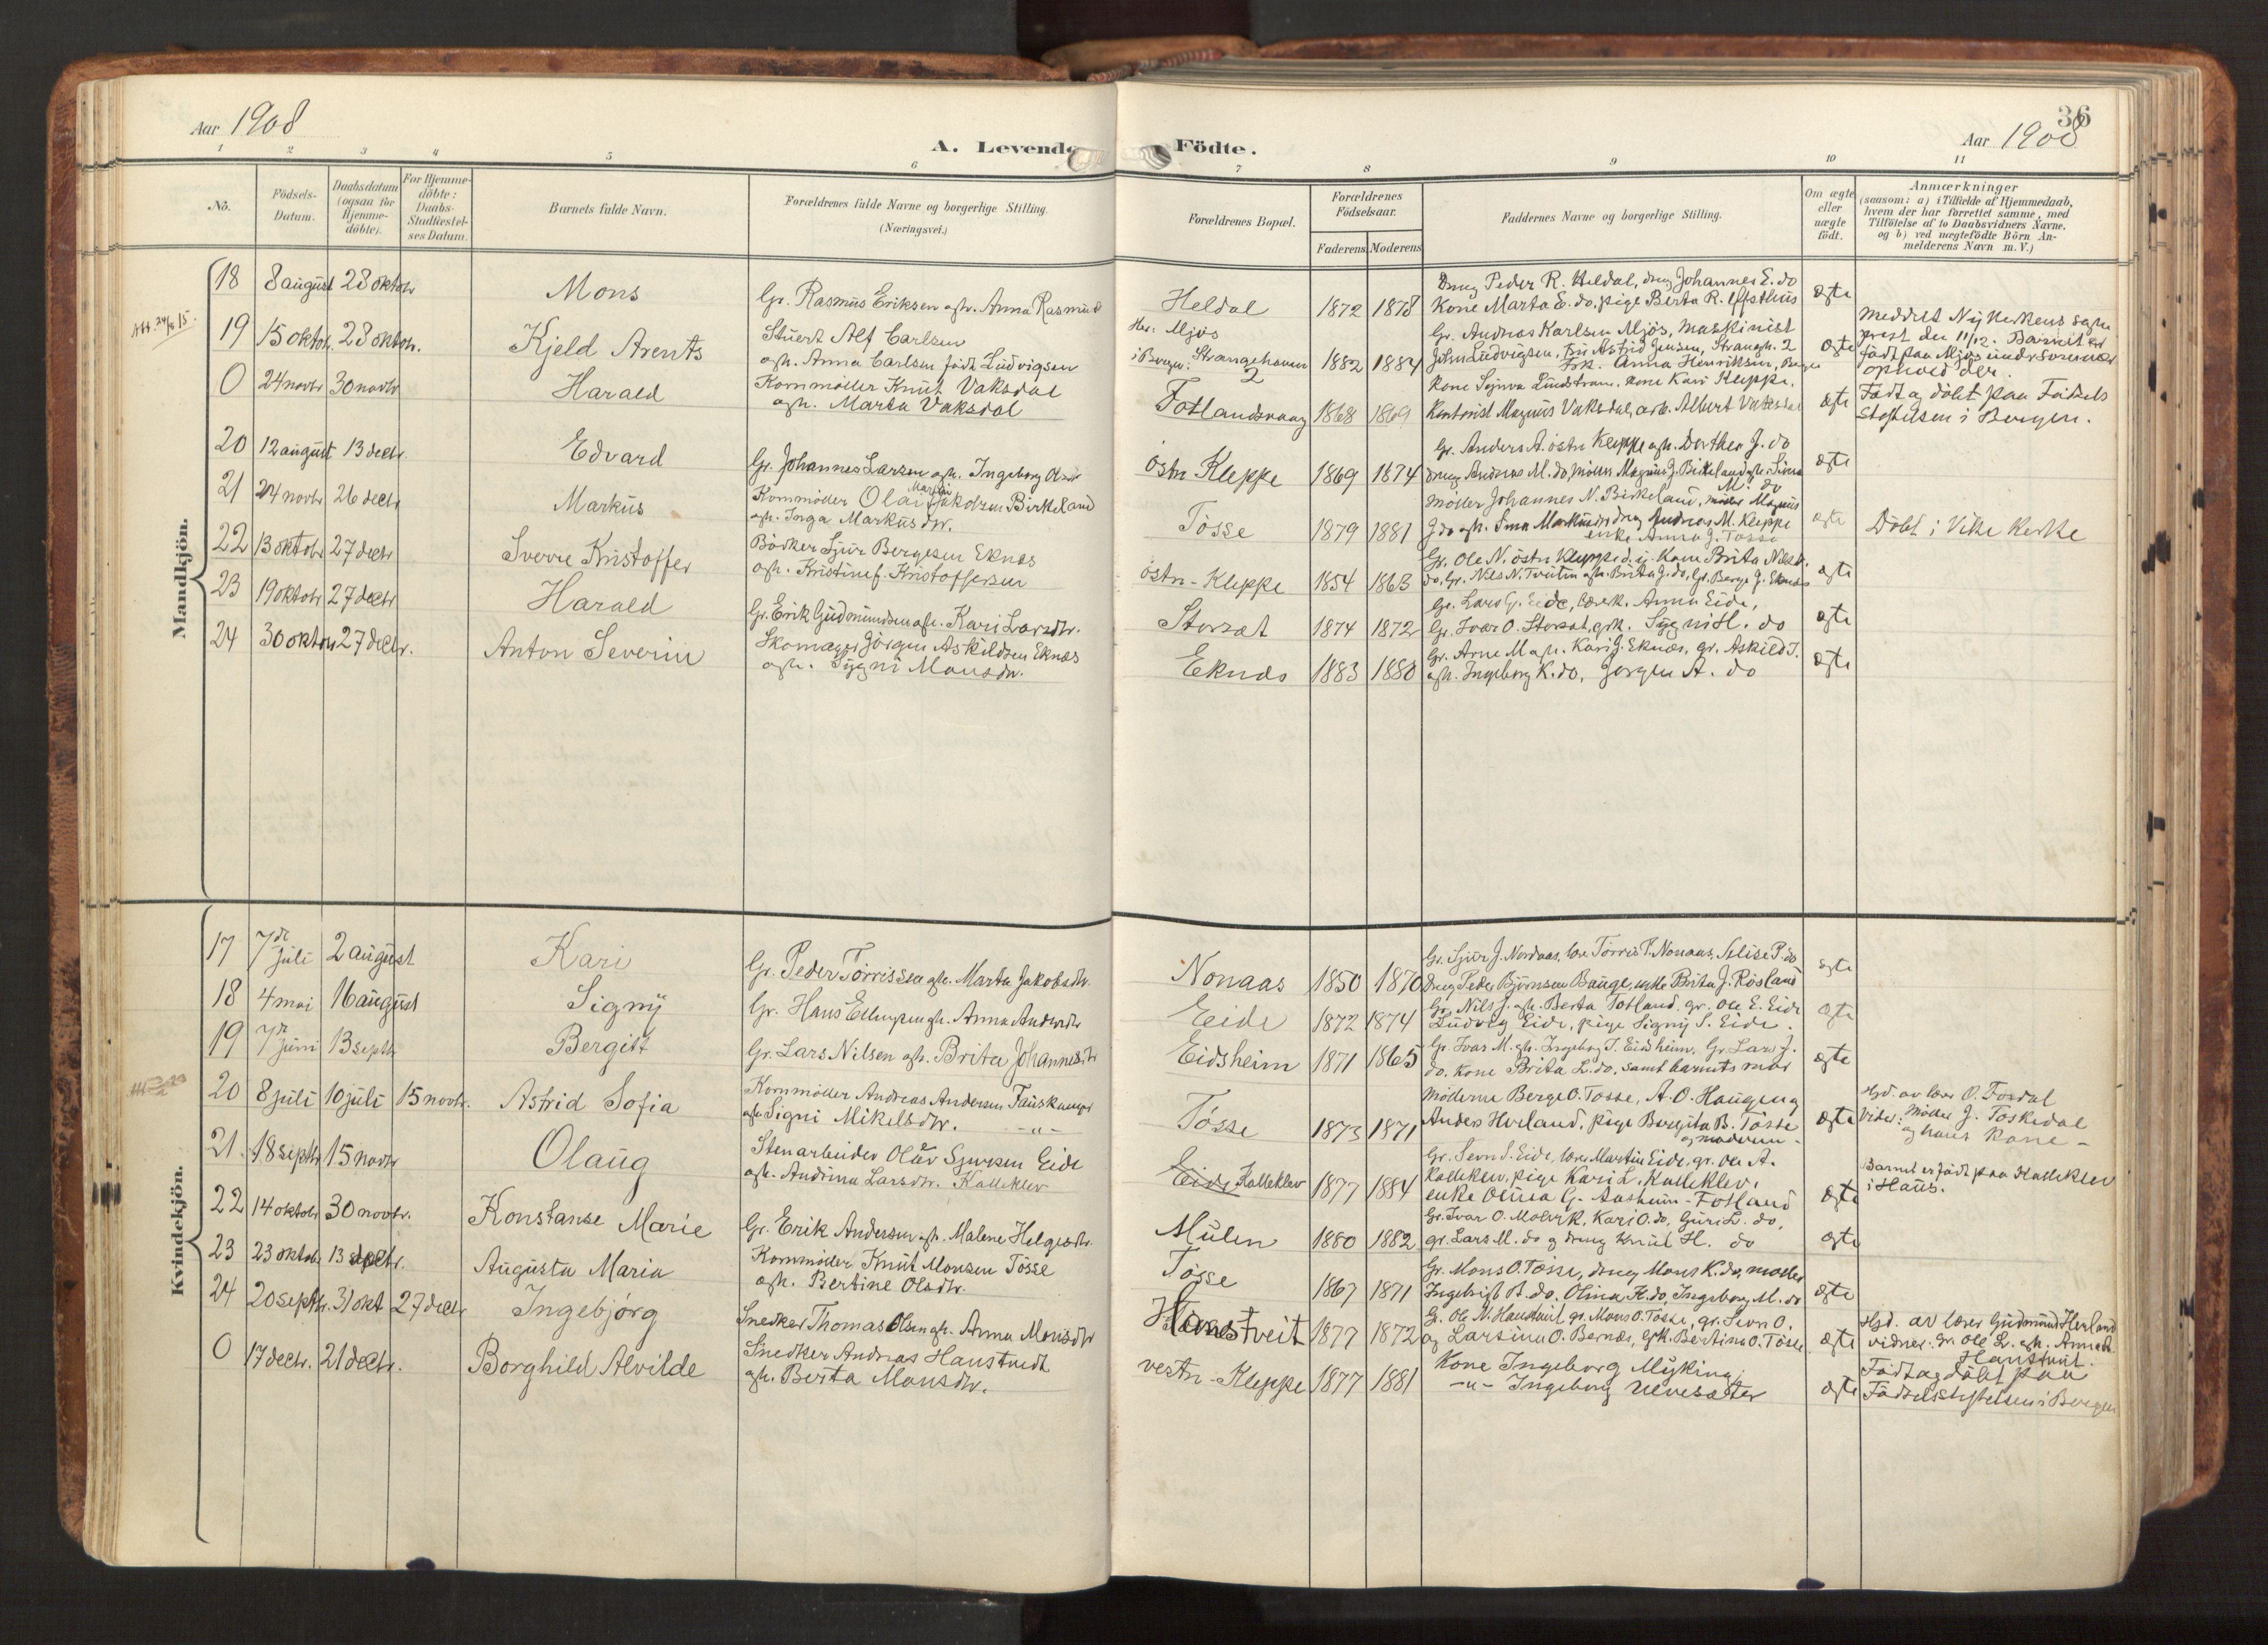 Aar 1908
A. Levende Födte.
36
Aar 1908
1 2 3 4 5 6 7 8 9 10 11
No.
Födsels-Datum.
Daabsdatum (ogsaa for Hjemme-döbte).
For Hjemme-döbte: Daabs-Stadfæstel-ses Datum.
Barnets fulde Navn.
Forældrenes fulde Navne og borgerlige Stilling. (Næringsvei.)
Forældrenes Bopæl.
Forældrenes Födselsaar.
Faderens Moderens
Faddernes Navne og borgerlige Stilling.
Om ægte eller uægte födt.
Anmærkninger
(saasom: a) i Tilfælde af Hjemmedaab,
hvem der har forrettet samme, med
Tilföielse af to Daabsvidners Navne.
og b) ved uægtefödte Börn An-
melderens Navn m. V.)
Mandkjön.
18 8 august 28 oktobr Mons
Gr. Rasmus Eriksen og h. Anna Rasmusd
Heldal 1872 1878
Drug Peder R. Heldal, drug Johannes E. do
Kone Marta E. do, pige Berta R.
ægte
19 15 oktobr. 28 oktobr. Kjeld Arents
Stuert Alf Carlsen
og h. Anna Carlsen född Ludvigsen
Mjös
i Bergen: Strangehaven 2 1882 1884
Gr. Andreas Karlsen Mjös, Maskinist
John Ludvigsen, Fru Astrid Jensen, Strangh. 2
Frk. Anna Henriksen, Bergen
ægte
Meddelt Nykirkens sogne
prest den 11/12. Barnet er
född paa Mjös under
ophold der.
0 24 novbr 30 novbr Harald
Kornmöller Knut Vaksdal
og h. Marta Vaksdal
Fotlandsvaag 1868 1869
Kone Lindström, kone Kari Kleppe,
Kontorist Magnus Vaksdal, arb. Albert Vaksdal
ægte
Född og döbt paa Födsels
Stiftelsen i Bergen.
20 12 august 13 decbr. Edvard
Gr. Johannes Larsen og h. Ingeborg
östn Kleppe 1869 1874
Gr. Anders A. östn Kleppe og h. Dorthea J. do
drug Andreas M. do, möller Magnus J. Birkeland og h. Sina
M. do
ægte
21 24 novbr 26 decbr Markus
Kornmöller Olai Martin Jakobsen Birkeland
og h. Inga Markusdtr.
Tösse 1879 1881
Möller Johannes N. Birkeland, möller Magnus
J. do og h. Markusdtr drug Andreas M. Kleppe
enke Anna J. Tösse
ægte
Döbt i Vike Kirke
22 13 oktobr 27 decbr Sverre Kristoffer
Bödker Sjur Bergesen Eknes
og h. Kristine f. Kristoffersen
östn-Kleppe 1854 1863
Gr. Ole N. östn Kleppe Kone Brita Nilsd.
do, Gr. Nils N. og h. Brita J. do, Gr. Berge J. Eknes
ægte
23 19 oktobr 27 decbr Harald
Gr. Erik Gudmundsen og h. Kari Larsdtr.
Storsæt 1874 1872
Gr. Lars G. Eide, Anna Eide,
Gr. Ivar O. Storsæt, grk. Sygni H. do
ægte
24 30 oktobr 27 decbr. Anton Severin
Skomager Jörgen Askildsen Eknæs
og h. Sygni Monsdtr.
Eknæs 1883 1880
Gr. Arne M og h. Kari J. Eknæs, gr. Askild J.
og h. Ingeborg K. do, Jörgen A. do
ægte
Kvindekjön.
17 7de juli 2 august Kari
Gr. Peder Törrissen og h. Marta Jakobsdtr.
Nonaas 1850 1870
Gr. Sjur J. Nordaas, Törris P. Nonaas, Selise P. do
Drug Peder Björnsen Bauge, enke Brita J. Rösland
ægte
18 4 mai 16 august Signy
Gr. Hans Ellingsen og h. Anna Andersdtr
Eide 1872 1874
Gr. Nils J. og h. Berta Totland, gr. Ole E. Eide
Ludvig Eide, pige Signy S. Eide.
ægte
19 7de juni 13 septbr Bergitt
Gr. Lars Nilsen og h. Brita Johannesdtr
Eidsheim 1871 1865
Gr. Ivar M. og h. Ingeborg I. Eidsheim, Gr. Lars J.
do, kone Brita L. do, samt barnets mor
ægte
20 8 juli 10 juli 15 novbr. Astrid Sofia
Kornmöller Andreas Andersen Fauskanger
og h. Signi Mikelsdtr. -„-
Tösse 1873 1871
Möllerne Berge O. Tösse, A. O. Haugen og
Anders Herland, pige Bergita B. Tösse
og moderen -
ægte
Hjd. av lærer O. Fosdal
Vidner: Möller J. Toskedal
og hans kone -
21. 18 septbr 15 novbr Olaug
Stenarbeider Olav Sjursen Eide
og h. Andrina Larsdtr. Kalleklev
Eide Kalleklev 1877 1884
Gr. Sevn S. Eide, lærer Martin Eide, gr. Ole A.
Kalleklev, pige Kari L. Kalleklev,
enke Olina G. Aasheim-Fotland
ægte
Barnet er född paa Kalleklev
i Haus.
22 14 oktobr 30 novbr. Konstanse Marie
Gr. Erik Andersen og h. Malene Helgesdtr.
Mulen 1880 1882
Gr. Ivar O. Molvik, Kari O. do, Guri L. do,
gr. Lars M. do og drug Knut H. do
ægte
23 23 oktobr 13 decbr. Augusta Maria
Kornmöller Knut Monsen Tösse
og h. Bertine Olsdtr.
Tösse 1867 1871
Gr. Mons O. Tösse, drug Mons K. do, möller
Ingebrigt B. do, Olina K. do, Ingeborg M. do
ægte
24 20 septbr. 31 okt 27 decbr Ingebjörg
Snedker Thomas Olsen og h. Anna Monsdtr
Haustveit 1877 1872
Gr. Ole N. Haustveit, gr. Mons O. Tösse, gr. Sevn O.
og Larsina O. Bernes, grk. Bertina O. Tösse
ægte
Hjd. av lærer Gudmund Herland
vidner: gr. Ole L. og h. Anna
Haustveit.
0 17 decbr. 21 decbr. Borghild Alvilde
Snedker Andreas Haustvedt
og h. Berta Monsdtr.
vestn-Kleppe 1877 1881
Kone Ingeborg Myking
-„- Ingeborg Ulvesæter
ægte
Född og döbt paa
Födselsstiftelsen i Bergen